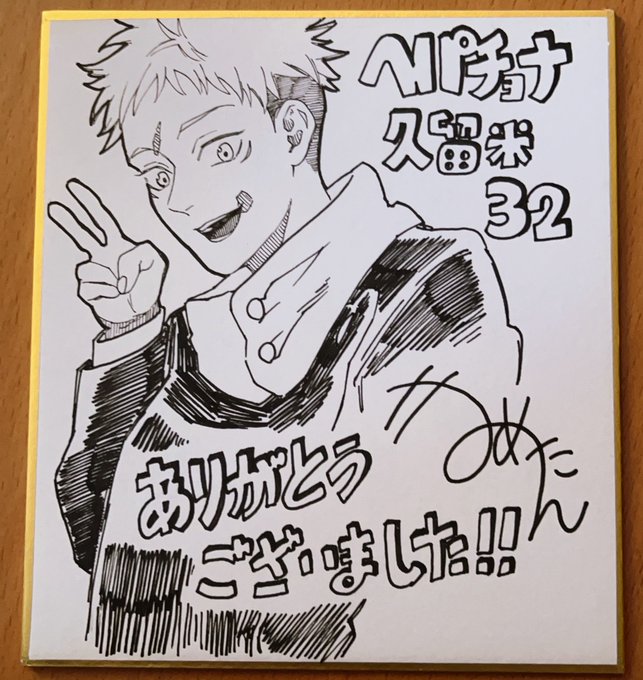 ヘパチョナ
久留米
32
ありがとう
ございました!!
かめたん